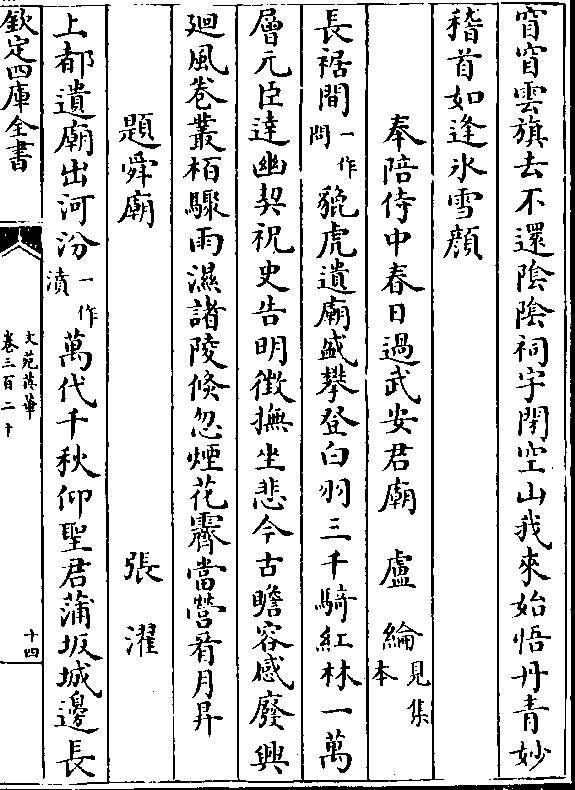 窅窅雲旗去不還陰陰祠宇閉空山我來始悟丹青妙
稽首如逢氷雪顔
奉陪侍中春日過武安君廟　盧綸見集本
長裾間一作問貔虎遺廟盛攀登白羽三千騎紅林一萬
層元臣達幽契祝史告明徴撫坐悲今古瞻容感廢興
廻風巻叢栢驟雨濕諸陵倐忽煙花霽當營看月昇
題舜廟　張濯
上都遺廟出河汾一作濆萬代千秋仰聖君蒲坂城邊長
欽定四庫全書
文苑英華
卷三百二十
十四